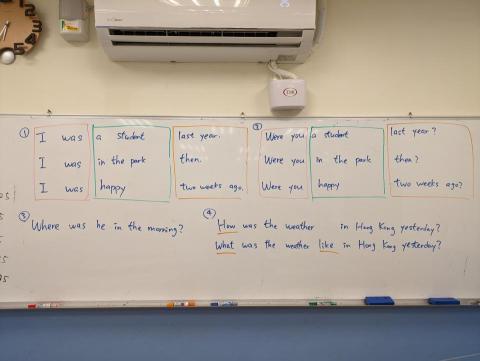 ① I was a student last year.
I was in the park then.
I was happy two weeks ago.
② Were you a student last year?
Were you in the park then?
Were you happy two weeks ago?
③ Where was he in the morning?
④ How was the weather in Hong Kong yesterday?
What was the weather like in Hong Kong yesterday?